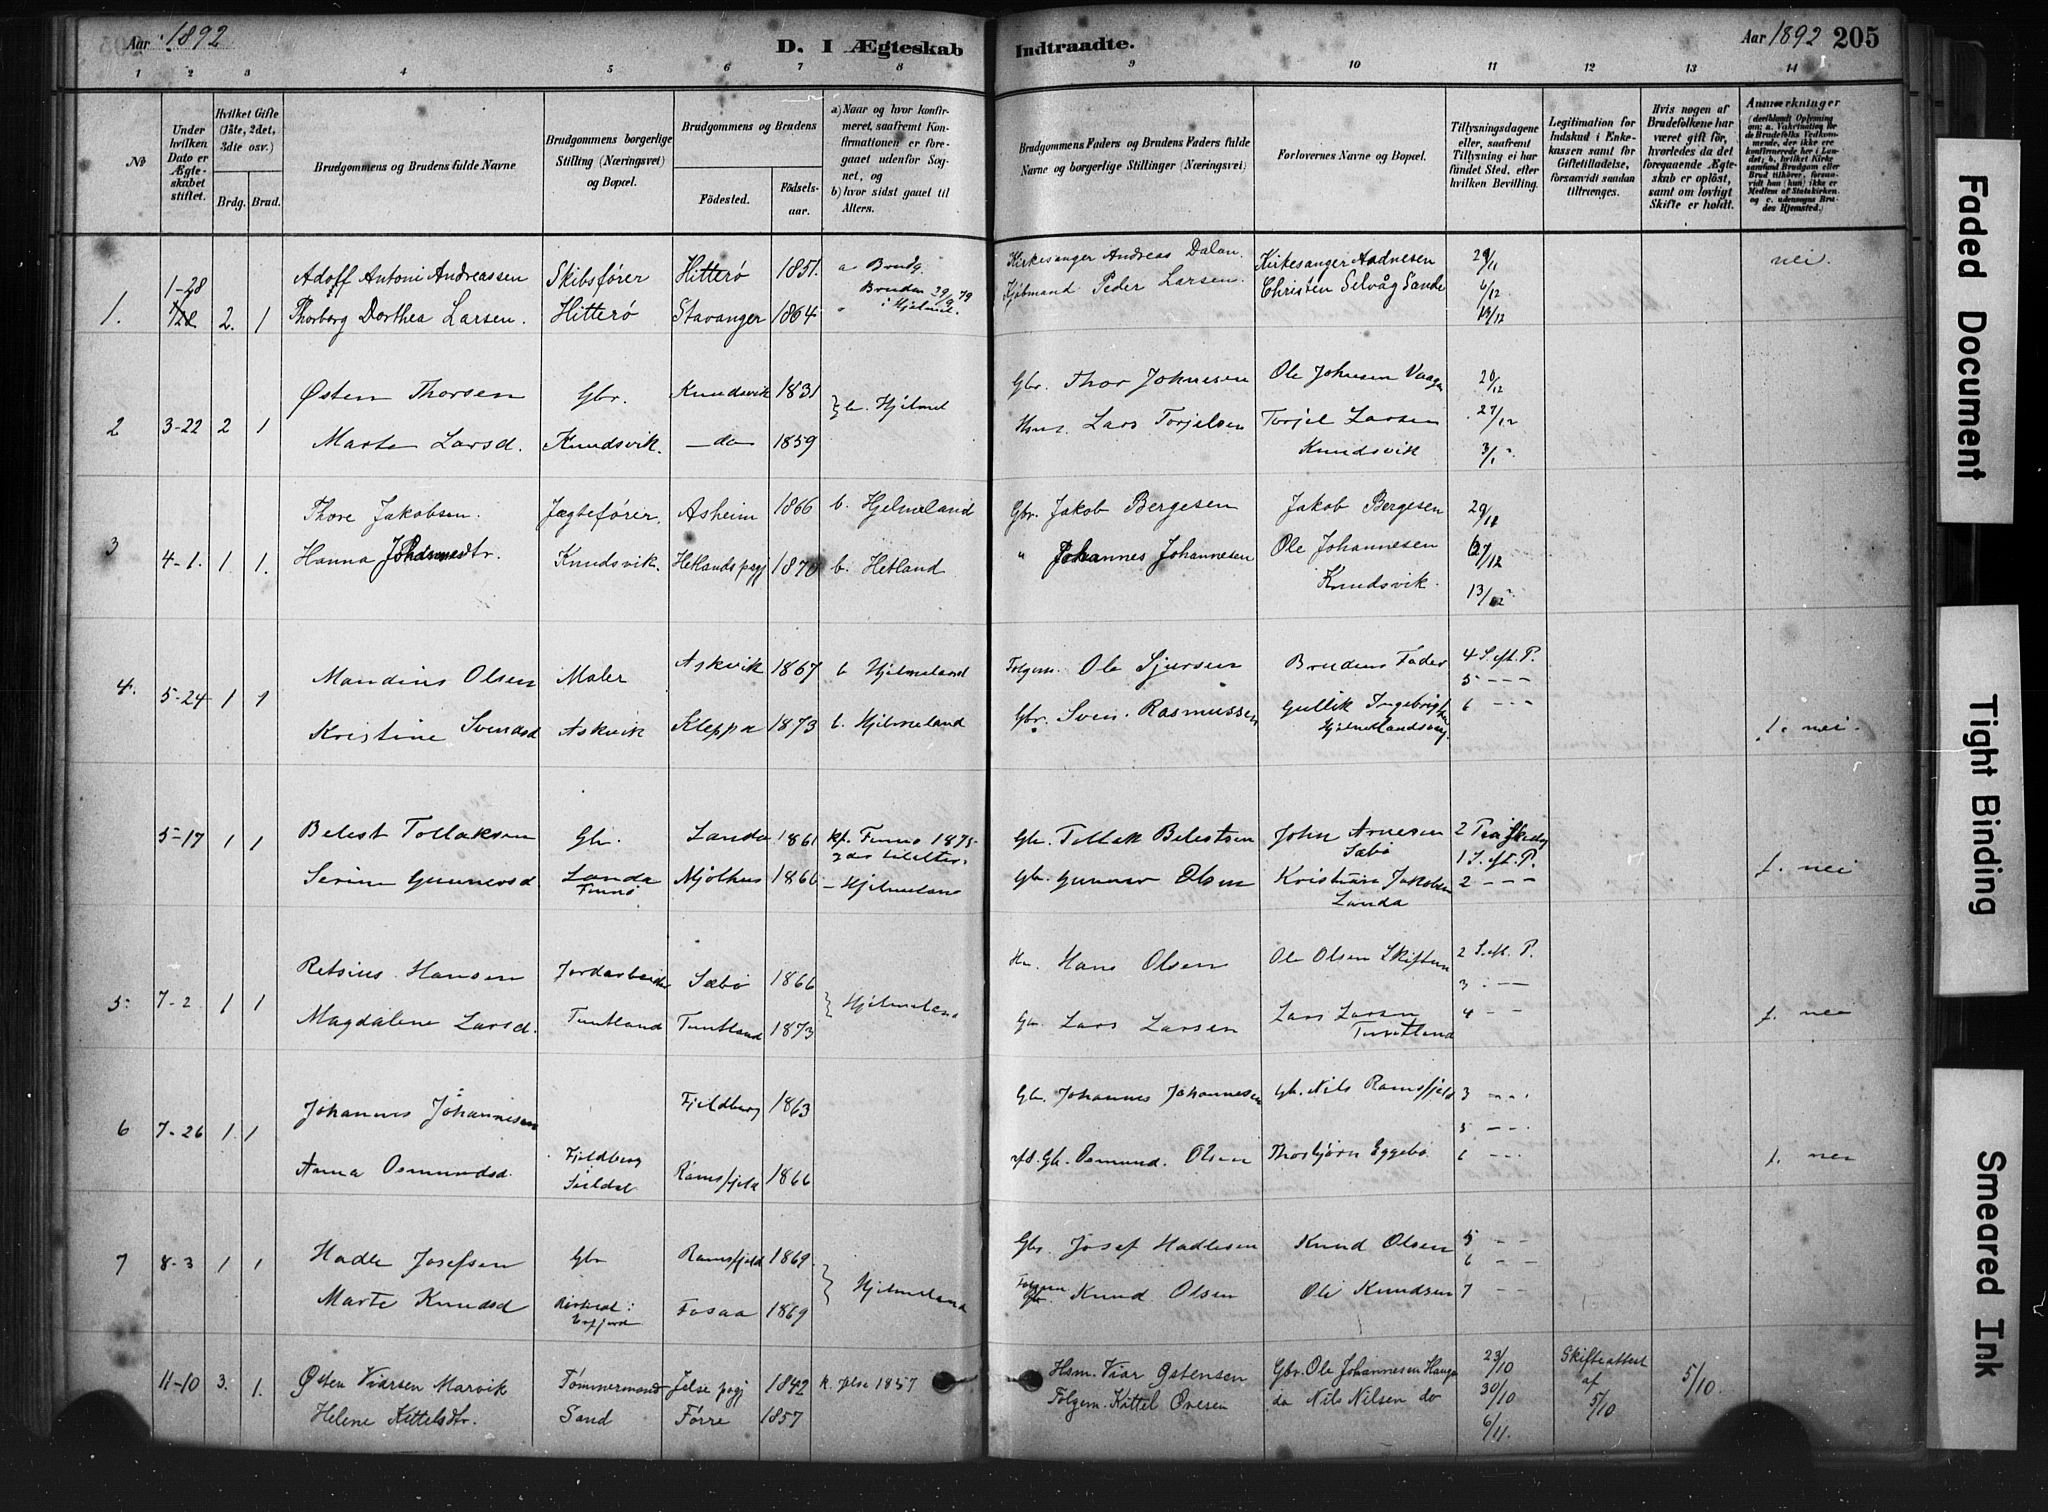 Aar 1892
D. I Ægteskab Indtraadte.
Aar 1892 205
1 2 3 4 5 6 7 8 9 10 11 12 13 14
No
Under hvilken Dato er Ægteskabet stiftet.
Hvilket Gifte (1ste, 2det, 3die osv.)
Brdg. Brud.
Brudgommens og Brudens fulde Navne
Brudgommens borgerlige Stilling (Næringsvei) og Bopæl.
Brudgommens og Brudens
Födested.
Födselsaar.
a) Naar og hvor konfirmeret, saafremt Konfirmationen er foregaaet udenfor Sognet, og
b) hvor sidst gaaet til Alters.
Brudgommens Faders og Brudens Faders fulde Navne og borgerlige Stillinger (Næringsvei)
Forlovernes Navne og Bopæl.
Tillysningsdagene eller, saafremt Tillysning ei har fundet Sted, efter hvilken Bevilling.
Legitimation for Indskud i Enkekassen samt for Giftetilladelse, forsaavidt saadan tiltrænges.
Hvis nogen af Brudefolkene har været gift för, hvorledes da det foregaaende Ægteskab er oplöst, samt om lovligt Skifte er holdt.
Anmærkninger
1. 1-28 2. 1
Adolf Antoni Andreassen Skibsfører Hitterø 1851. a Brudg.
Thorberg Dorthea Larsen. Hitterø Stavanger 1864 Bruden 29/9 79 i Hjelmel.
Kirkesanger Andreas Dalan. Kirkesanger Aadnesen 29/11 nei.
Kjøbmand Peder Larsen. Christen Selvåg Sande 6/12
13/12
2 3-22 2 1
Østen Thorsen Gbr. Knudsvik 1831 b. Hjelmel
Marte Larsd. Knudsvik. - do 1859
Gbr. Thor Johnesen Ole Johnsen Vaage 20/12
Hsm. Lars Torjelsen Torjel Larsen 27/12
Knudsvik 3/1
3 4-1. 1 1.
Thore Jakobsen. Jægtefører. Asheim 1866 b. Hjelmeland
Hanna Johannesdtr. Knudsvik. Hetlands pgj 1870 b. Hetland
Gbr. Jakob Bergesen Jakob Bergesen 29/11
" Johannes Johannesen Ole Johannesen
Knudsvik. 13/12
4. 5-24 1 1
Mandius Olsen Maler Askvik 1867 b Hjelmeland
Kristine Svendsd Askvik Kleppa 1873 b. Hjelmeland
Folgem. Ole Sjursen Brudens Fader 4 S. eft. P.
5 - - -
Gbr. Sven. Rasmussen Gullik Ingebrigtsen 6 - - -
Hjelmelandsvåg. f. nei.
5-17 1 1
Belest Tollaksen Gbr. Landa 1861 kf. Finnø 1875
Serina Gunnersd. Landa Mjølhus 1866 - Hjelmeland
Finnø
Gbr. Tollak Belestsen John Arnesen 2 Paaskedag
Sæbø 1 S. eft. P.
Gbr. Gunnar Olsen Kristian Jakobsen 2 - - - f. nei
Landa
5 7-2 1 1
Retsius Hansen Jordarbeider Sæbø 1866 Hjelmeland
Magdalene Larsd. Tuntland Tuntland 1873
Hm. Hans Olsen Ole Olsen Skiftun 2 S. eft. P.
3 - -
Gbr Lars Larsen Lars Larsen 4 - - f. nei
Tuntland
6 7-26 1 1
Johannes Johannesen Fjeldberg 1863
Anna Osmundsd. Fjeldberg Ramsfjeld 1866
Suldal
Gbr. Johannes Johannesen Gbr. Nils Ramsfjeld 3 - - -
5 - - -
afd. Gbr. Osmund. Olsen Thorbjørn Eggebø 6 - - - f. nei
7 8-3 1 1
Hadle Josefsen Gbr Ramsfjeld 1869 Hjelmeland
Marte Knudsd Fosaa 1869
Erfjord
Gbr. Josef Hadlesen Knud Olsen 5 - -
6 - -
Folgem Gbr. Knud Olsen Ole Knudsen 7 - -
11-10 3. 1.
Østen Viarsen Marvik Tømmermand Jelse pgj 1842 k. Jelse 1857
Helene Kittelsdtr. Sand Førre 1857
Hsm. Viar Østensen Gbr. Ole Johannesen Hauge 23/10 Skifteattest af 5/10 5/10.
Folgem. Kittel Ovesen do Nils Nilsen do 30/10
6/11.
Faded Document
Tight Binding
Smeared Ink